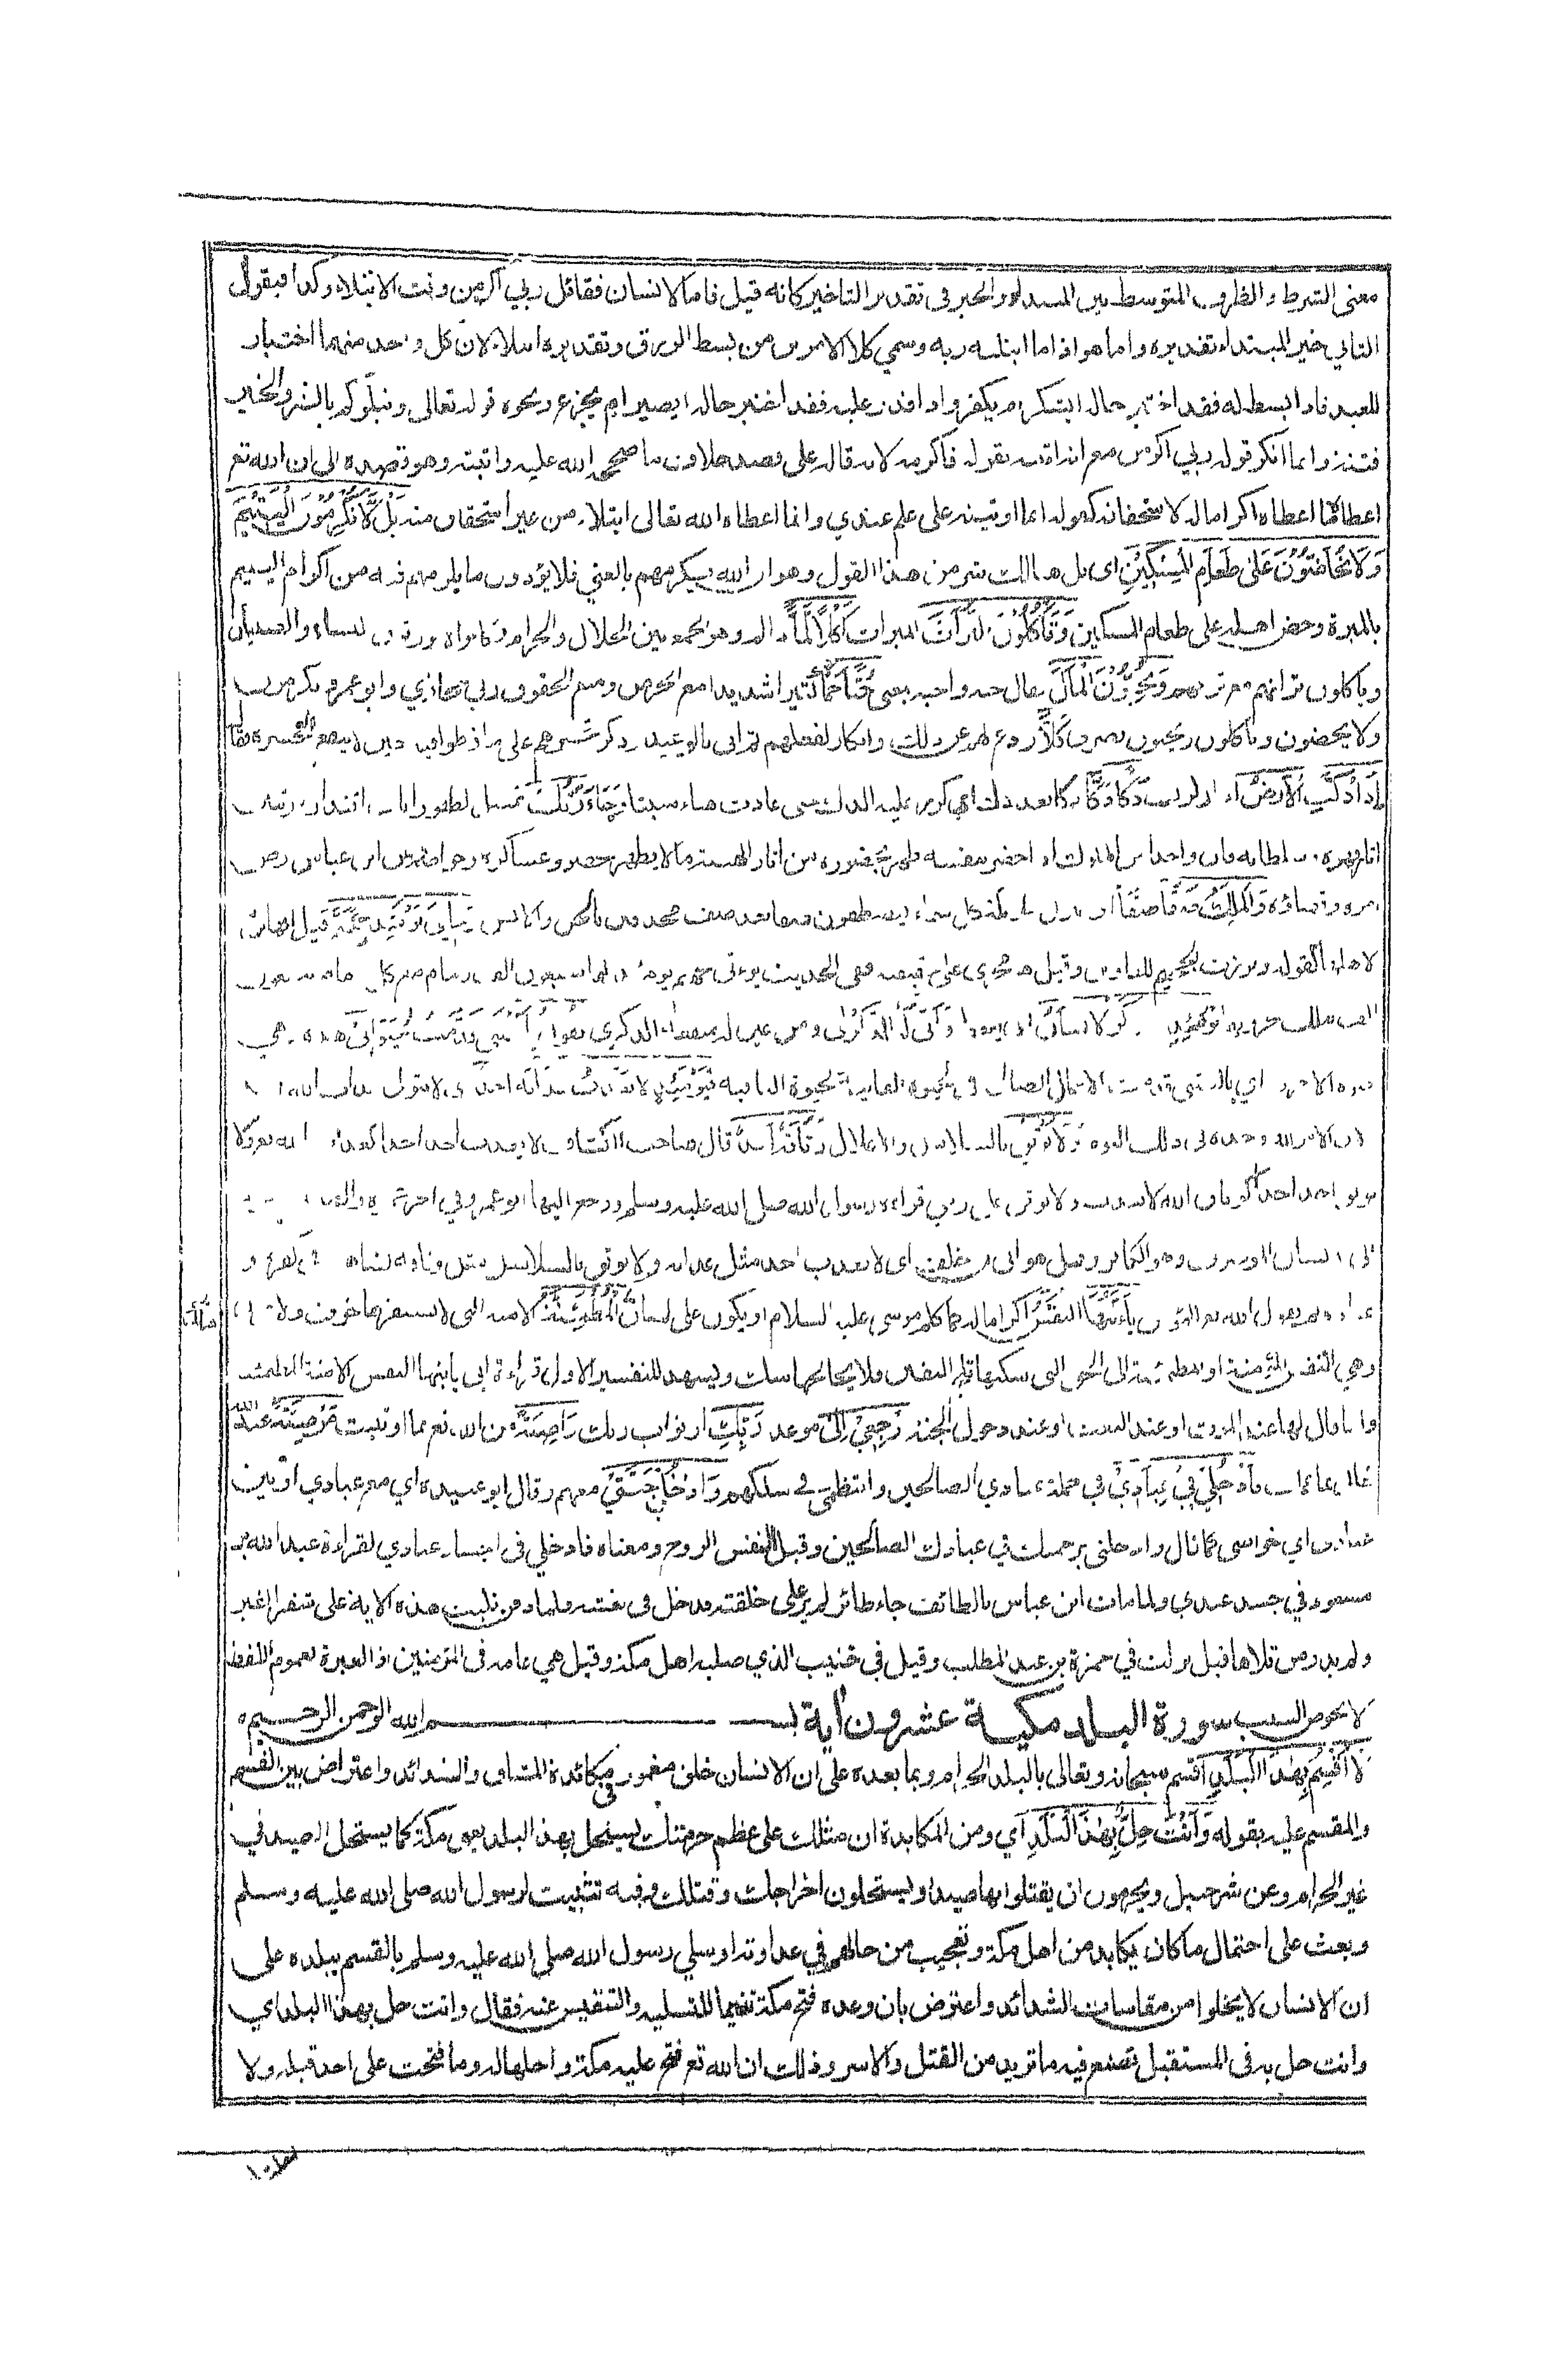 معنى الشرط والظرف المتوسط بين المبتدا والخبر في تقدير التاخير كانه قيل فاما الانسان فقائل ربي اكرمن وقت الابتلاء وكذا فيقول
الثاني خبر المبتداء تقديره واما هو اذا ما ابتليه ربه وسمي كلا الامرين من بسط الرزق وتقديره ابتلاء لان كل واحد منهما اختبار
للعبد فاذا بسط له فقد اختبر حاله ايشكر ام يكفر واذا قدر عليه فقد اختبر حاله ايصبر ام يجزع ونحوه قوله تعالى ونبلوكم بالشر والخير
فتنة وانما انكر قوله ربي اكرمن مع انه اثبته بقوله فاكرمه لانه قاله على قصد خلاف ما صححه الله عليه واثبته وهو قصده الى ان الله تع
اعطاه ما اعطاه اكراما له لاستحقاقه كقوله انما اوتيته على علم عندي وانما اعطاه الله تعالى ابتلاء من غير استحقاق منه بل لا تكرمون اليتيم
ولا تحاضون على طعام المسكين اي بل هناك شر من هذا القول وهو ان الله يكرمهم بالغنى فلا يؤدون ما يلزمهم فيه من اكرام اليتيم
بالمبرة وحض اهله على طعام المسكين وتاكلون التراث الميراث اكلا لما ذا لم وهو الجمع بين الحلال والحرام وكانوا لا يورثون النساء والصبيان
وياكلون تراثهم مع تراثهم وتحبون المال يقال حبه واحبه بمعنى حبا جما كثيرا شديدا مع الحرص ومنع الحقوق ربي حجازي وابو عمرو يكرمون
ولا يحضون وياكلون ويحبون بصري كلا ردع لهم عن ذلك وانكار لفعلهم ثم اتى بالوعيد وذكر تحسرهم على ما فرطوا فيه حين لا ينفع الحسرة فقال
اذا دكت الارض اذا زلزلت دكا دكا دكا بعد دك اي كرر عليها الدك حتى عادت هباء منبثا وجاء ربك تمثيل لظهور ايات اقتداره وتبيين
اثار قهره وسلطانه فان واحدا من الملوك اذا حضر بنفسه ظهر بحضوره من اثار الهيبة ما لا يظهر بحضور عساكره وخواصه وعن ابن عباس رض
امره وقضاؤه والملك صفا صفا اي ينزل ملائكة كل سماء فيصطفون صفا بعد صف محدقين بالجن والانس وجاىء يومئذ بجهنم قيل انها برزت
لاهلها كقوله وبرزت الجحيم للغاوين وقيل هو مجرى على حقيقته ففي الحديث يؤتى بجهنم يومئذ لها سبعون الف زمام مع كل زمام سبعون
الف ملك يجرونها يومئذ يتذكر الانسان اي يتعظ وانى له الذكرى ومن اين له منفعة الذكرى يقول يا ليتني قدمت لحياتي هذه وهي
حيوة الاخرة اي يا ليتني قدمت الاعمال الصالحة في الحيوة الفانية للحيوة الباقية فيومئذ لا يعذب عذابه احد اي لا يتولى عذاب الله احد
لان الامر لله وحده في ذلك اليوم ولا يوثق بالسلاسل والاغلال وثاقه احد قال صاحب الكشاف لا يعذب احد احدا كعذاب الله ولا
يوثق احد احدا كوثاق الله لا يعذب ولا يوثق علي وهي قراءة رسول الله صلى الله عليه وسلم ورجع اليها ابو عمرو في اخر عمره والضمير
الى الانسان الموصوف وهو الكافر وقيل هو ابي بن خلف اي لا يعذب احد مثل عذابه ولا يوثق بالسلاسل مثل وثاقه لتناهيه في كفره و
عناده ثم يقول الله تع للمؤمن يا ايتها النفس اكراما له كما كلم موسى عليه السلام او يكون على لسان ملك المطمئنة الامنة التي لا يستفزها خوف ولا حزن
وهي النفس المؤمنة او المطمئنة الى الحق التي سكنها ثلج اليقين فلا يخالجها شك ويشهد للتفسير الاول قراءة ابي يا ايتها النفس الامنة المطمئنة
وانما يقال لها عند الموت او عند البعث او عند دخول الجنة ارجعي الى موعد ربك او ثواب ربك راضية من الله بما اوتيت مرضية عند الله
بما عملت فادخلي في عبادي في جملة عبادي الصالحين وانتظمي في سلكهم وادخلي جنتي معهم وقال ابو عبيدة اي مع عبادي او بين
عبادي اي خواصي كما قال وادخلني برحمتك في عبادك الصالحين وقيل النفس الروح ومعناه فادخلي في اجساد عبادي لقراءة عبد الله بن
مسعود في جسد عبدي ولما مات ابن عباس بالطائف جاء طائر لم ير على خلقته فدخل في نعشه فلما دفن تليت هذه الاية على شفير القبر
ولم يدر من تلاها قيل نزلت في حمزة بن عبد المطلب وقيل في خبيب الذي صلبه اهل مكة وقيل هي عامة في المؤمنين اذ العبرة لعموم اللفظ
لا بخصوص السبب سورة البلد مكية عشرون اية بسم الله الرحمن الرحيم
لا اقسم بهذا البلد اقسم سبحانه وتعالى بالبلد الحرام وبما بعده على ان الانسان خلق مغمورا في مكائدة المشاق والشدائد واعترض بين القسم
والمقسم عليه بقوله وانت حل بهذا البلد اي ومن المكابدة ان مثلك على عظم حرمتك يستحل بهذا البلد يعني مكة كما يستحل الصيد في
غير الحرام وعن شرحبيل ويحرمون ان يقتلوا بها صيدا ويستحلون اخراجك وقتلك وفيه تثبيت لرسول الله صلى الله عليه وسلم
وبعث على احتمال ما كان يكابد من اهل مكة وتعجيب من حالهم في عداوته او سلي رسول الله صلى الله عليه وسلم بالقسم ببلده على
ان الانسان لا يخلوا من مقاسات الشدائد واعترض بان وعده فتح مكة تتميما للتسلية والتنفيس عنه فقال وانت حل بهذا البلد اي
وانت حل به في المستقبل تصنع فيه ما تريد من القتل والاسر وذلك ان الله تع فتح عليه مكة واحلها له وما فتحت على احد قبله ولا